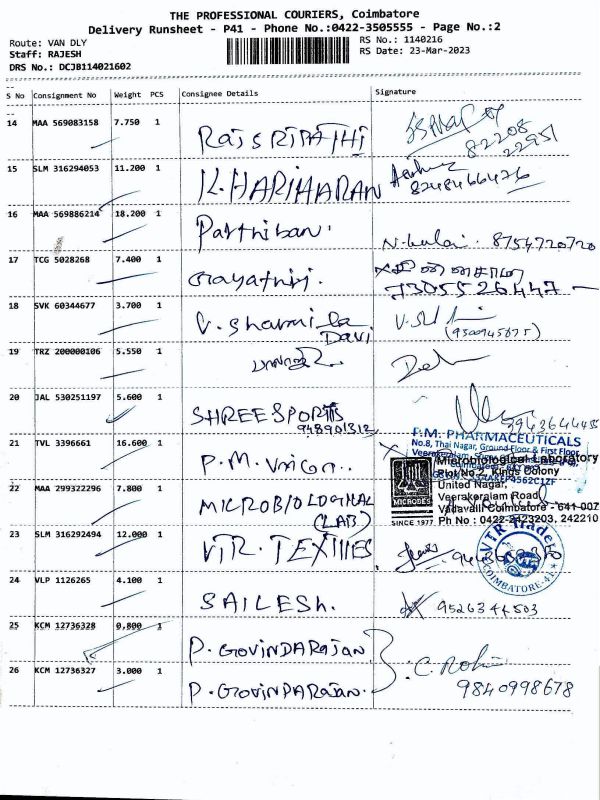 THE PROFESSIONAL COURIERS, Coimbatore
Delivery Runsheet - P41 - Phone No.:0422-3505555 - Page No.:2
Route: VAN DLY
Staff: RAJESH
DRS No.: DCJB114021602
RS No.: 1140216
RS Date: 23-Mar-2023
S No Consignment No Weight PCS Consignee Details Signature
14 MAA 569083158 7.750 1 RAJSRIPATHI
82208
22951
15 SLM 316294053 11.200 1 K.HARIHARAN
8248466476
16 MAA 569886214 18.200 1 Parthiban. N. 8754720720
17 TCG 5028268 7.400 1 Gayathiri.
7305526447
18 SVK 60344677 3.700 1 V. Sharmila
Davi
(9500945875)
19 TRZ 200000106 5.550 1
20 JAL 530251197 5.600 1 SHREE SPORTS
948901312
21 TVL 3396661 16.600 1 P.M.
P.M. PHARMACEUTICALS
No.8, Thai Nagar, Ground Floor & First Floor,
22 MAA 299322296 7.800 1 MICROBIOLOGINAL
(LAB)
Microbiological Laboratory
Plot No.2, Kings Colony
United Nagar,
Veerakeralam Road
Vadavalli Coimbatore - 641 007
Ph No : 0422-2423203, 242210
MICRODES
SINCE 1977
23 SLM 316292494 12.000 1 VTR. TEXTILES
VTR Traders
COIMBATORE-41
24 VLP 1126265 4.100 1 SAILESH. 9526344503
25 KCM 12736328 0.800 1 P. GOVINDARAJAN
26 KCM 12736327 3.000 1 P. GOVINDARAJAN. C. Rohi
9840998678